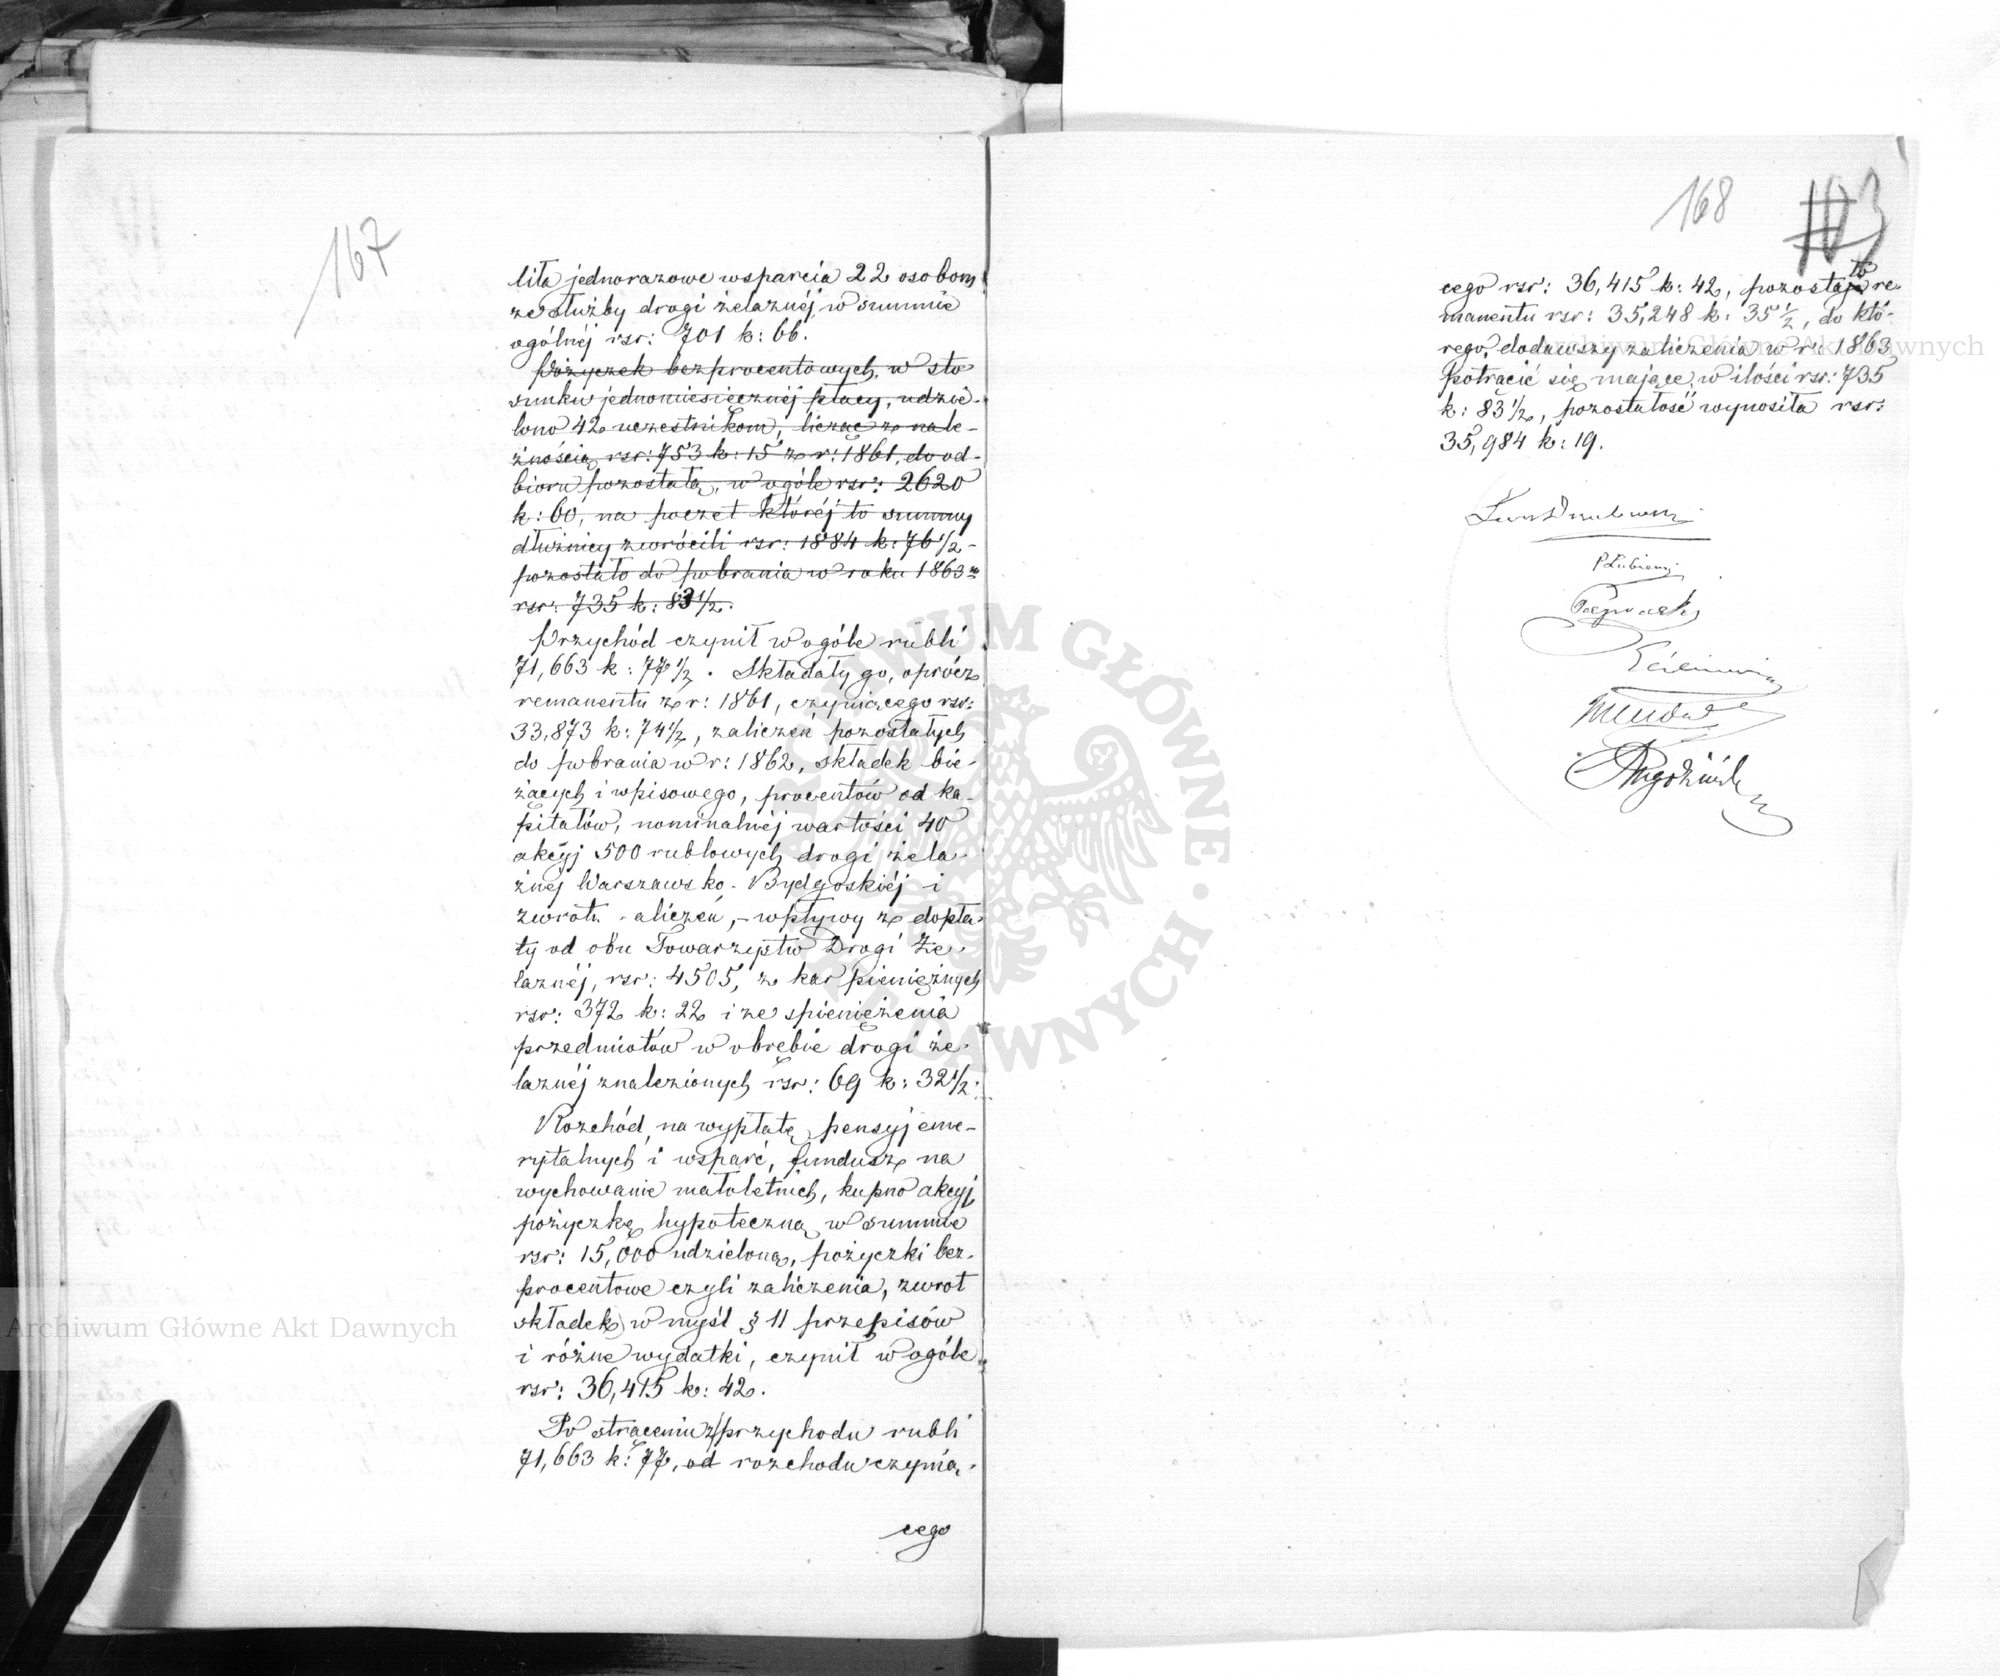 167
liła jednorazowe wsparcia 22 osobom
ze służby drogi żelaznéj w summie
ogólnéj rsr: 701 k: 66.
Pożyczek bezprocentowych, w sto
sunku jednomiesięcznéj płacy, udzie-
lono 42 uczestnikom, licząc z nale-
żnością rsr: 753 k: 15 z r: 1861, do od-
bioru pozostałą, w ogóle rsr: 2620
k: 60, na poczet któréj to summy
dłużnicy zwrócili rsr: 1884 k: 76 1/2 -
pozostało do pobrania w roku 1863 m
rsr: 735 k: 83 1/2.
Przychód czynił w ogóle rubli
71,663 k: 77 1/2. Składały go, oprócz
remanentu z r: 1861, czyniącego rsr:
33,873 k: 74 1/2, zaliczeń pozostałych
do pobrania w r: 1862, składek bie-
żących i wpisowego, procentów od ka-
pitałów, nominalnéj wartości 40
akcyj 500 rublowych drogi żela-
znéj Warszawsko-Bydgoskiéj i
zwrotu aliczeń, - wpływy z dopła-
ty od obu Towarzystw Drogi Że-
laznéj, rsr: 4505, z kar pieniężnych
rsr: 372 k: 22 i ze spieniężenia
przedmiotów w obrębie drogi że-
laznéj znalezionych rsr: 69 k: 32 1/2.
Rozchód, na wypłatę pensyj eme-
rytalnych i wsparć, fundusz na
wychowanie małoletnich, kupno akcyj,
pożyczkę hypoteczną w summie
rsr: 15,000 udzieloną, pożyczki bez-
procentowe czyli zaliczenia, zwrot
składek w myśl § 11 przepisów
i różne wydatki, czynił w ogóle
rsr: 36,415 k: 42.
Po strąceniu z przychodu rubli
71,663 k: 77, od rozchodu czynią-
cego
168
103
cego rsr: 36,415 k: 42, pozostaje to re-
manentu rsr: 35,248 k: 35 1/2, do któ-
rego, dodawszy zaliczenia w r: 1863
potrącić się mające, w ilości rsr: 735
k: 83 1/2, pozostałość wynosiła rsr:
35,984 k: 19.
P Łubieński
Archiwum Główne Akt Dawnych
Archiwum Główne Akt Dawnych
ARCHIWUM GŁÓWNE AKT DAWNYCH